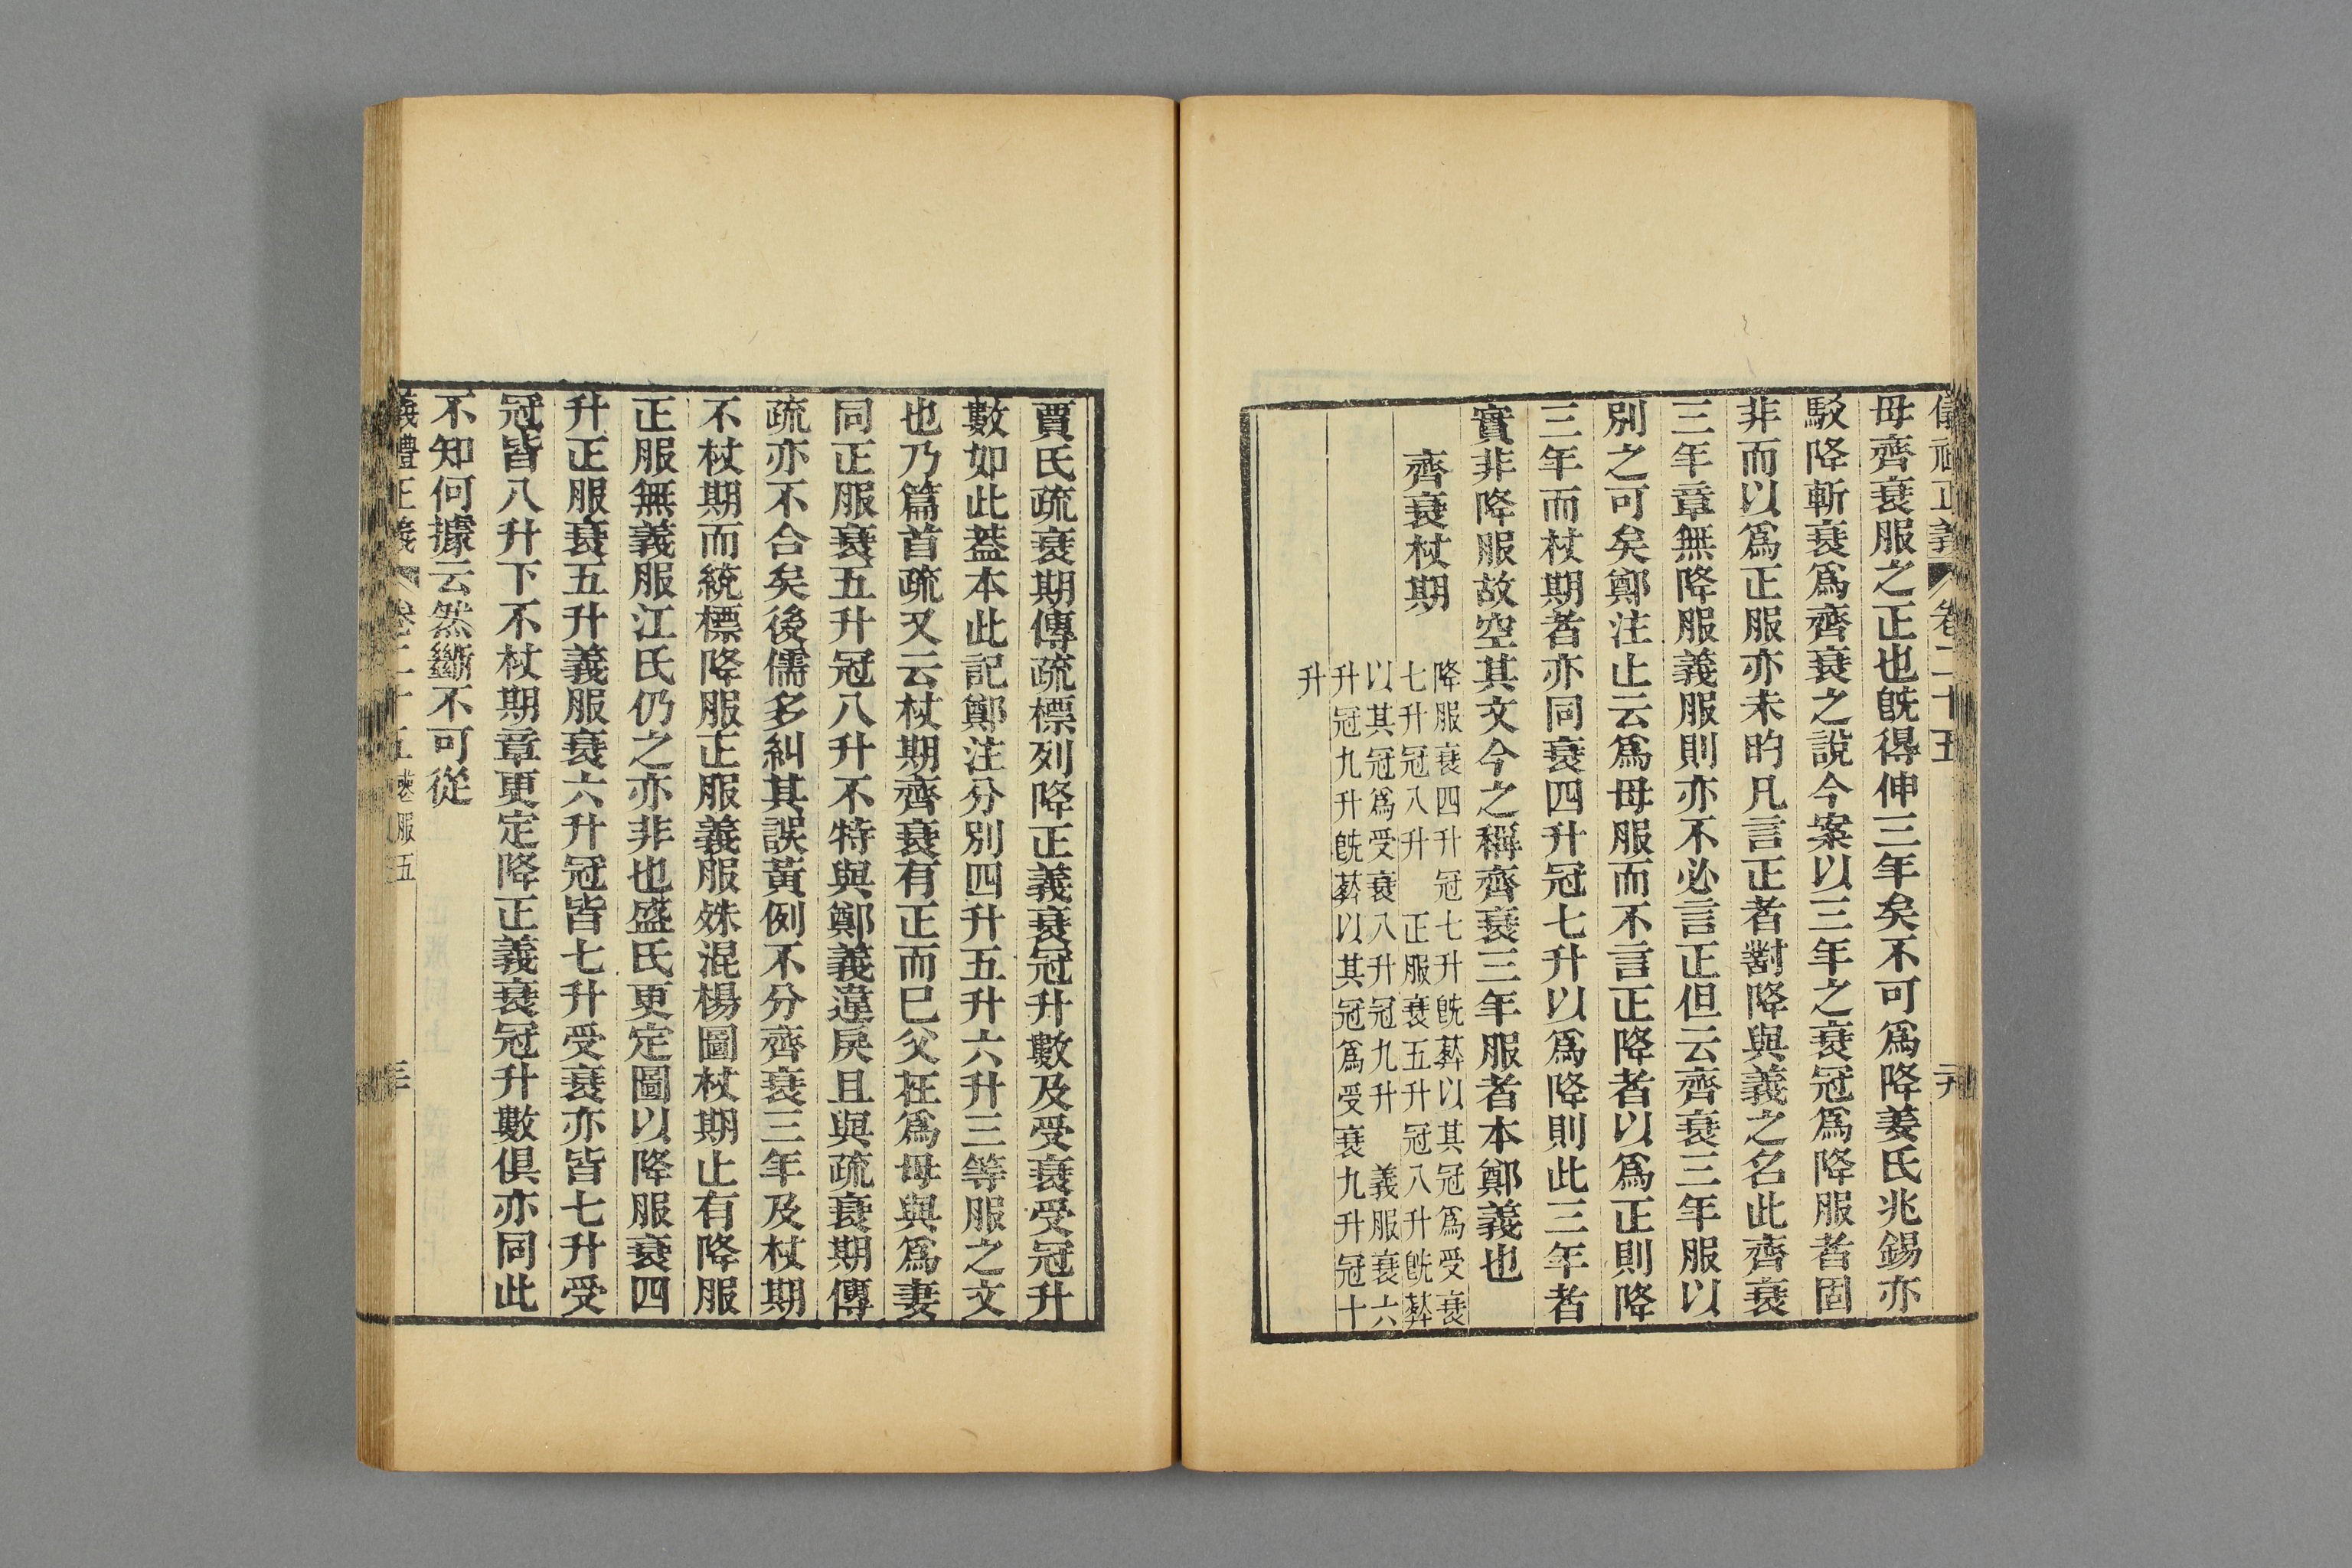 儀禮正義 卷二十五 二九
母齊衰服之正也旣得伸三年矣不可爲降姜氏兆錫亦
駁降斬衰爲齊衰之說今案以三年之衰冠爲降服者固
非而以爲正服亦未昀凡言正者對降與義之名此齊衰
三年章無降服義服則亦不必言正但云齊衰三年服以
別之可矣鄭注止云爲母服而不言正降者以爲正則降
三年而杖期者亦同衰四升冠七升以爲降則此三年者
實非降服故空其文今之稱齊衰三年服者本鄭義也
齊衰杖期
降服衰四升冠七升旣葬以其冠爲受衰
七升冠八升 正服衰五升冠八升旣葬
以其冠爲受衰八升冠九升 義服衰六
升冠九升旣葬以其冠爲受衰九升冠十
升
賈氏疏衰期傳疏標列降正義衰冠升數及受衰受冠升
數如此蓋本此記鄭注分別四升五升六升三等服之文
也乃篇首疏又云杖期齊衰有正而已父在爲母與爲妻
同正服衰五升冠八升不特與鄭義違戾且與疏衰期傳
疏亦不合矣後儒多糾其誤黃例不分齊衰三年及杖期
不杖期而統標降服正服義服殊混楊圖杖期止有降服
正服無義服江氏仍之亦非也盛氏更定圖以降服衰四
升正服衰五升義服衰六升冠皆七升受衰亦皆七升受
冠皆八升下不杖期章更定降正義衰冠升數俱亦同此
不知何據云然斷不可從
義禮正義 卷二十五 喪服五 三十